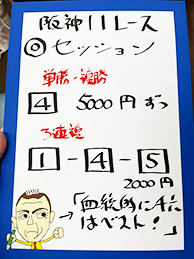 阪神11レース
◎セッション
単勝・複勝
4 5000円ずつ
3連複
1-4-5
2000円
→「血統的に4に
はベスト!」